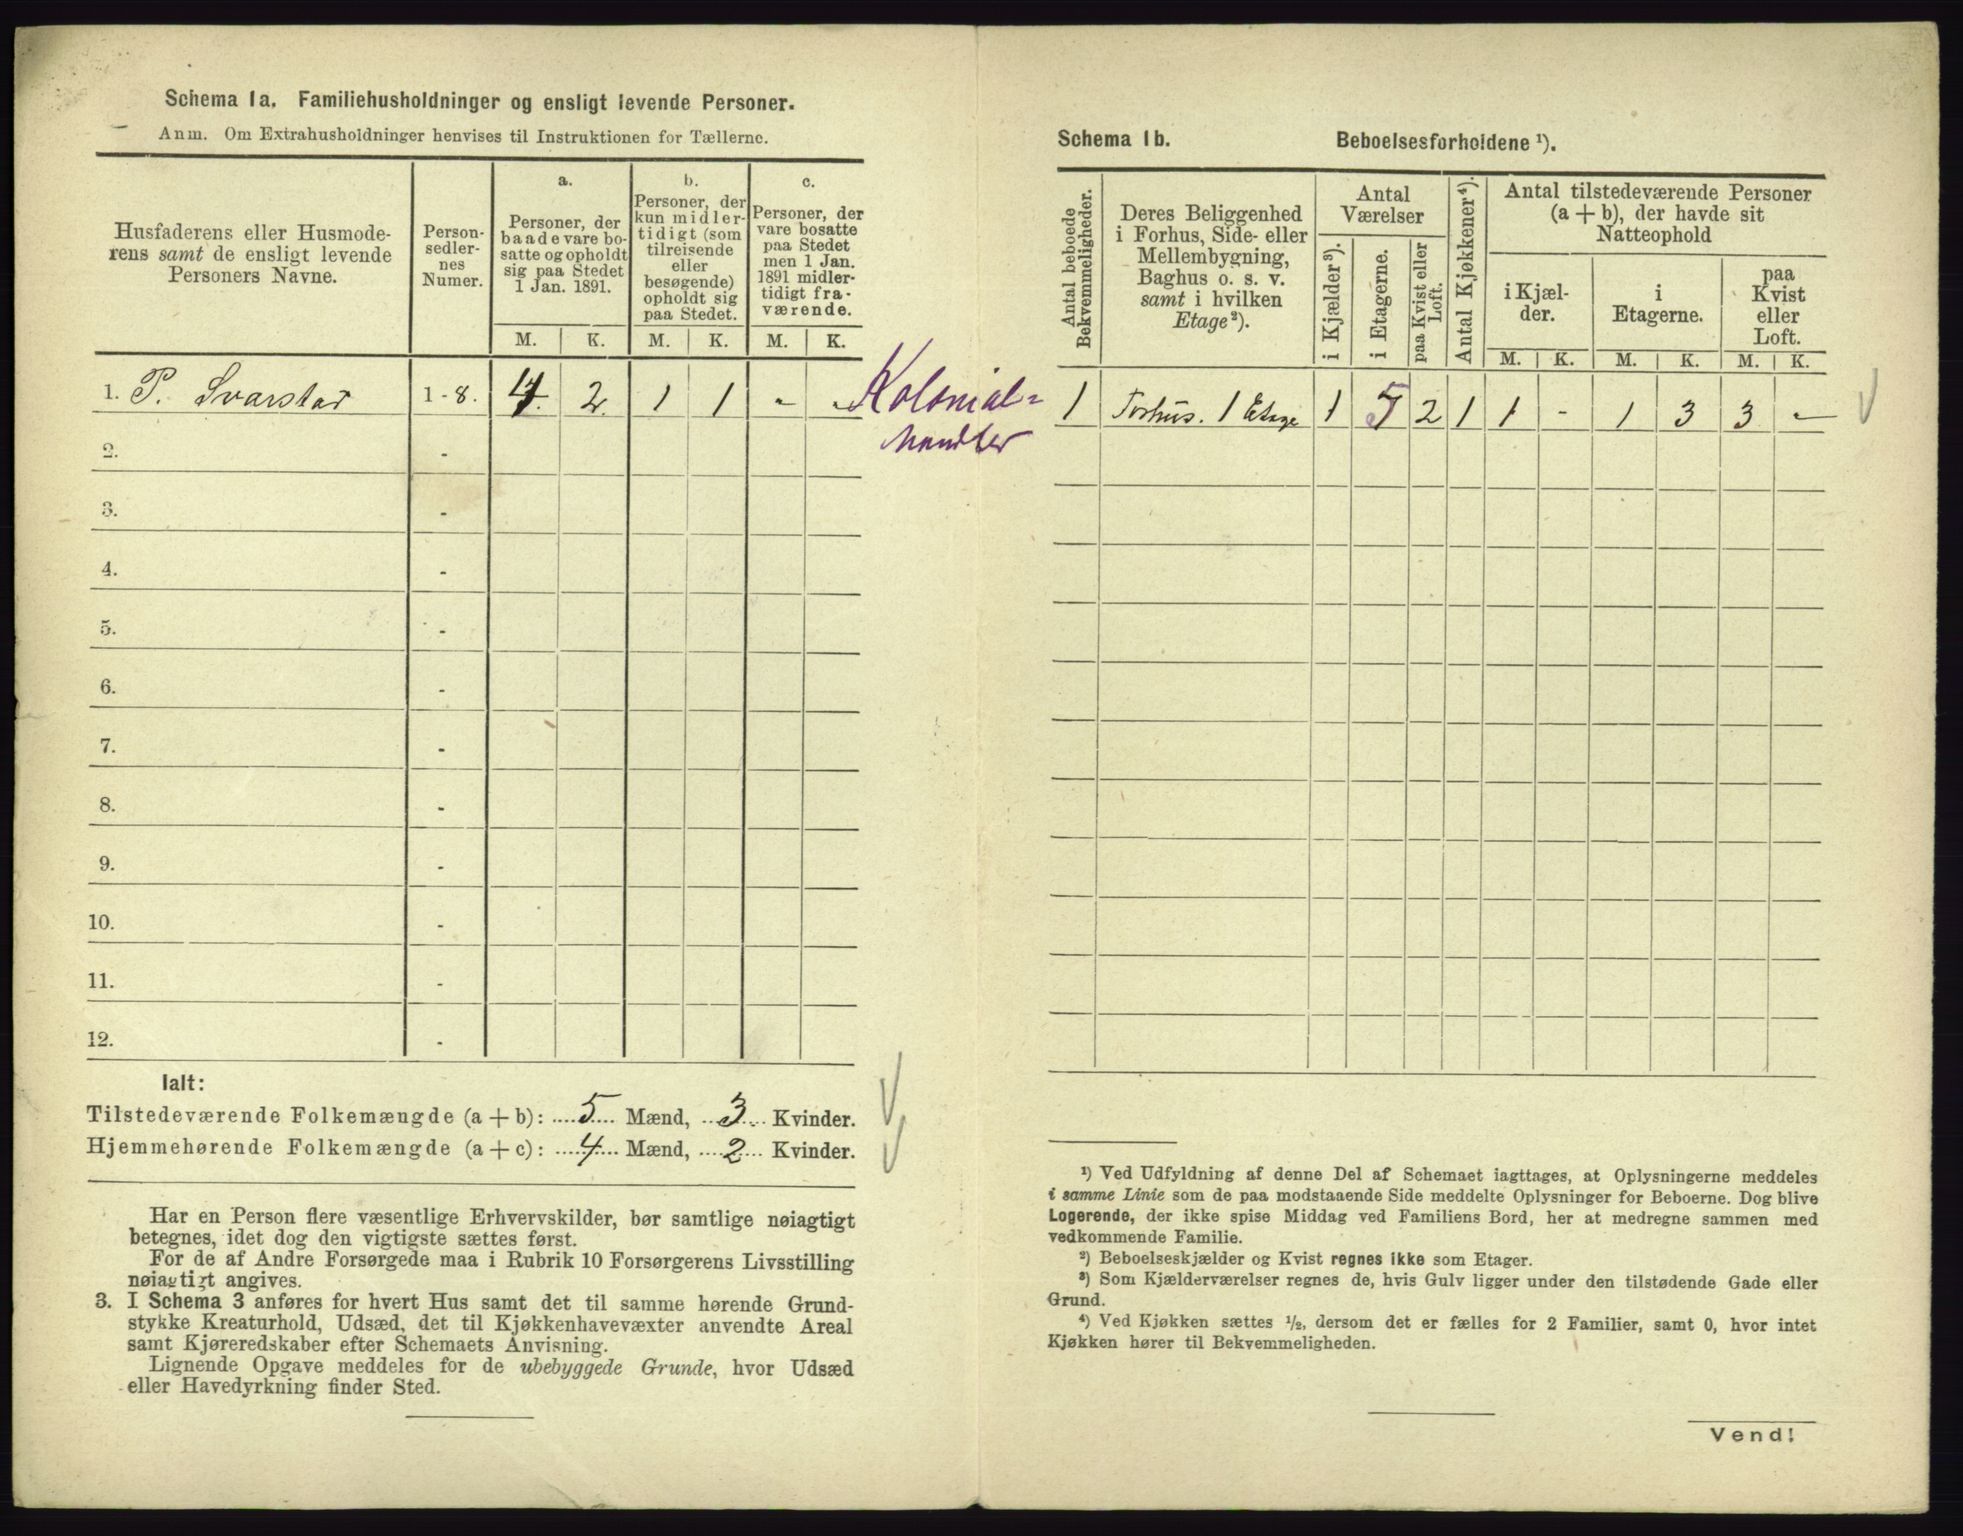 Schema 1a. Familiehusholdninger og ensligt levende Personer.
Anm. Om Extrahusholdninger henvises til Instruktionen for Tællerne.
Husfaderens eller Husmode-
rens samt de ensligt levende
Personers Navne.
Person-
sedler-
nes
Numer.
a.
Personer, der
baade vare bo-
satte og opholdt
sig paa Stedet
1 Jan. 1891.
b.
Personer, der
kun midler-
tidigt (som
tilreisende
eller
besøgende)
opholdt sig
paa Stedet.
c.
Personer, der
vare bosatte
paa Stedet
men 1 Jan.
1891 midler-
tidigt fra-
værende.
M. K. M. K. M. K.
1. P. Svarstad 1 - 8. 4 2. 1 1 - - Kolonial=
handler
2. -
3. -
4. -
5. -
6. -
7. -
8. -
9. -
10. -
11. -
12. -
Ialt:
Tilstedeværende Folkemængde (a + b): 5 Mænd, 3 Kvinder.
Hjemmehørende Folkemængde (a + c): 4 Mænd, 2 Kvinder.
Har en Person flere væsentlige Erhvervskilder, bør samtlige nøiagtigt
betegnes, idet dog den vigtigste sættes først.
For de af Andre Forsørgede maa i Rubrik 10 Forsørgerens Livsstilling
nøiagtigt angives.
3. I Schema 3 anføres for hvert Hus samt det til samme hørende Grund-
stykke Kreaturhold, Udsæd, det til Kjøkkenhavevæxter anvendte Areal
samt Kjøreredskaber efter Schemaets Anvisning.
Lignende Opgave meddeles for de ubebyggede Grunde, hvor Udsæd
eller Havedyrkning finder Sted.
Schema 1b. Beboelsesforholdene ¹).
Antal beboede
Bekvemmeligheder.
Deres Beliggenhed
i Forhus, Side- eller
Mellembygning,
Baghus o. s. v.
samt i hvilken
Etage²).
Antal
Værelser
i Kjælder³).
i Etagerne.
paa Kvist eller
Loft.
Antal Kjøkkener⁴).
Antal tilstedeværende Personer
(a + b), der havde sit
Natteophold
i Kjæl-
der.
i
Etagerne.
paa
Kvist
eller
Loft.
M. K. M. K. M. K.
1 Forhus. 1 Etage 1 5 2 1 1 - 1 3 3 -
¹) Ved Udfyldning af denne Del af Schemaet iagttages, at Oplysningerne meddeles
i samme Linie som de paa modstaaende Side meddelte Oplysninger for Beboerne. Dog blive
Logerende, der ikke spise Middag ved Familiens Bord, her at medregne sammen med
vedkommende Familie.
²) Beboelseskjælder og Kvist regnes ikke som Etager.
³) Som Kjælderværelser regnes de, hvis Gulv ligger under den tilstødende Gade eller
Grund.
⁴) Ved Kjøkken sættes ½, dersom det er fælles for 2 Familier, samt 0, hvor intet
Kjøkken hører til Bekvemmeligheden.
Vend!